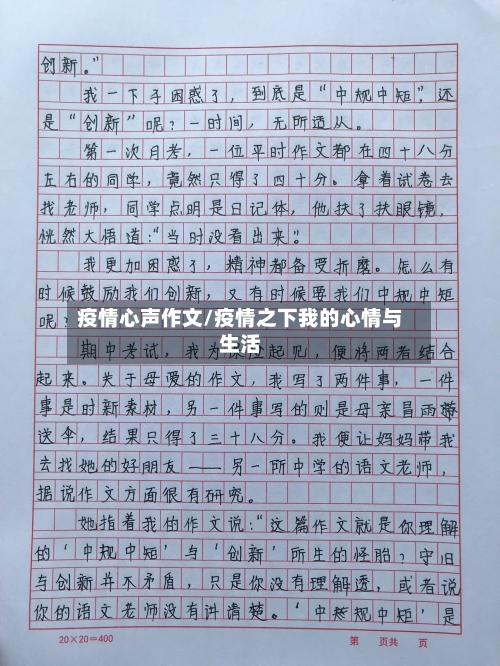 创新。”
我一下子困惑了，到底是“中规中矩”，还
是“创新”呢？一时间，无所适从。
第一次月考，一位平时作文都在四十八分
左右的同学，竟然只得了四十分。拿着试卷去
找老师，同学点明是日记体，他扶了扶眼镜，
恍然大悟道：“当时没看出来。”
我更加困惑了，精神都备受折磨。怎么有
时候鼓励我们创新，又有时候要我们中规中矩
呢？
疫情心声作文/疫情之下我的心情与
生活
期中考试，我为保险起见，便将两者结合
起来。关于母爱的作文，我写了两件事，一件
事是时新素材，另一件事写的则是母亲冒雨
送伞，结果只得了三十八分。我便让妈妈带我
去找她的好朋友——另一所中学的语文老师，
据说作文方面很有研究。
她指着我的作文说：“这篇作文就是你理解
的‘中规中矩’与‘创新’所生的怪胎？守旧
与创新并不矛盾，只是你没有理解透，或者说
你的语文老师没有讲清楚。‘中规中矩’是
20×20=400 第 页共 页